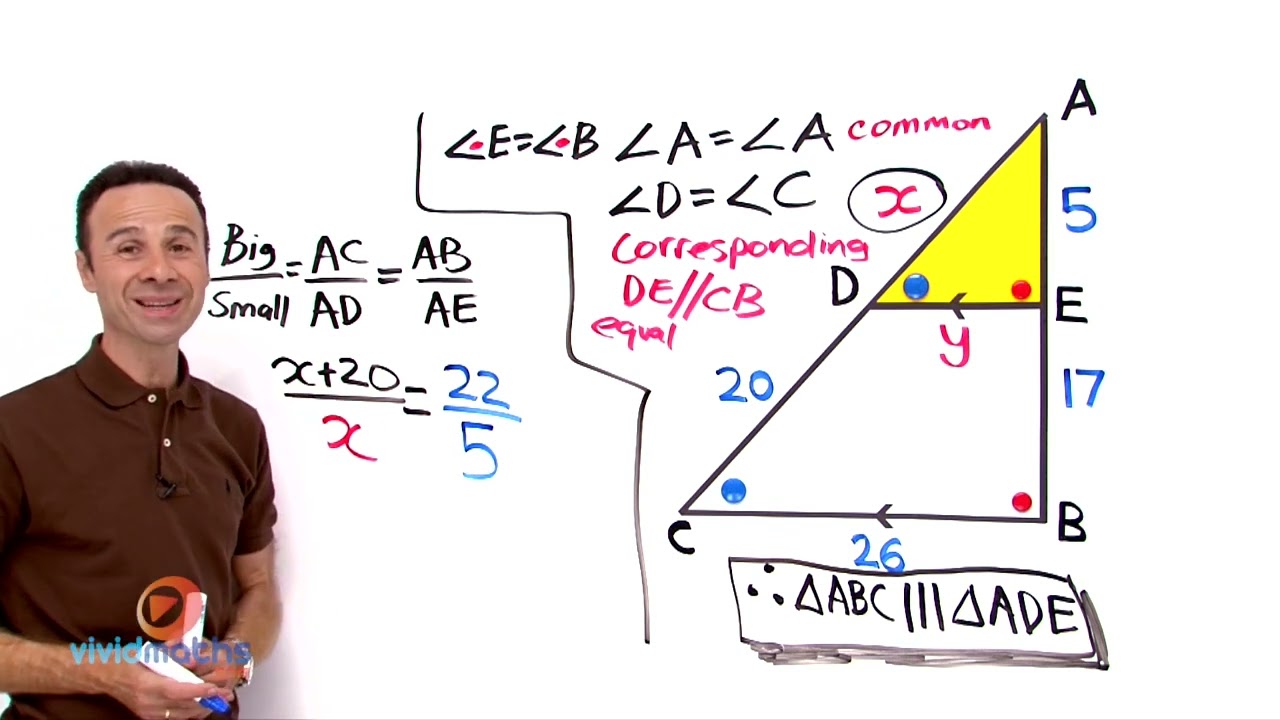 ∠E=∠B ∠A=∠A common
∠D=∠C x
corresponding
DE//CB
equal
Big/Small = AC/AD = AB/AE
x+20/x = 22/5
A
5
D
E
y
20
17
C
B
26
∴ΔABC|||ΔADE
vividmaths